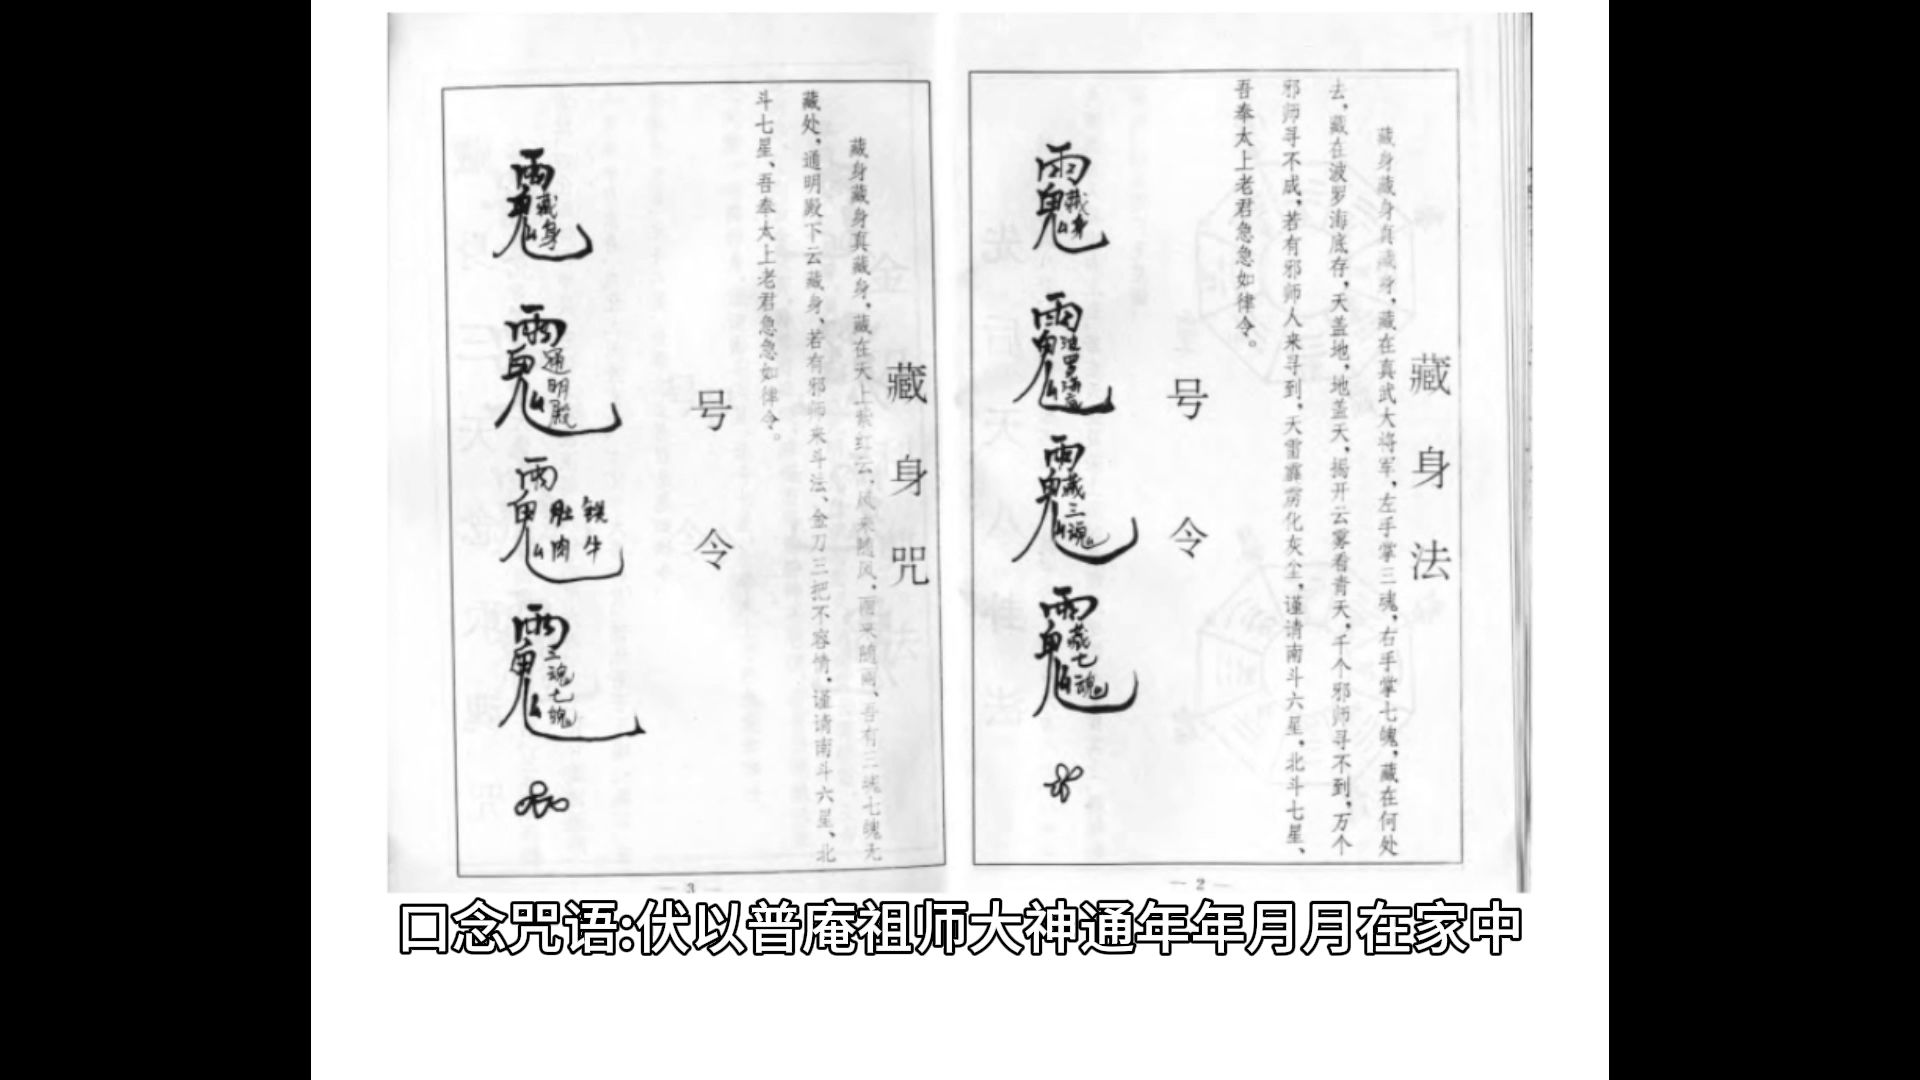 藏身法
藏身藏身真藏身，藏在真武大将军，左手掌三魂，右手掌七魄，藏在何处
去，藏在波罗海底存，天盖地，地盖天，揭开云雾看青天，千个邪师寻不到，万个
邪师寻不成，若有邪师人来寻到，天雷霹雳化灰尘，谨请南斗六星，北斗七星、
吾奉太上老君急急如律令。
号令
雨鬼藏身
雨鬼波罗海底
雨鬼藏三魂
雨鬼藏七魂
— 2 —
藏身咒
藏身藏身真藏身，藏在天上紫红云，风来随风，雨来随雨、吾有三魂七魄无
藏处，通明殿下云藏身、若有邪师来斗法、金刀三把不容情，谨请南斗六星、北
斗七星、吾奉太上老君急急如律令。
号令
雨鬼藏身
雨鬼通明殿
雨鬼肚内铁牛
雨鬼三魂七魄
— 3 —
口念咒语:伏以普庵祖师大神通年年月月在家中